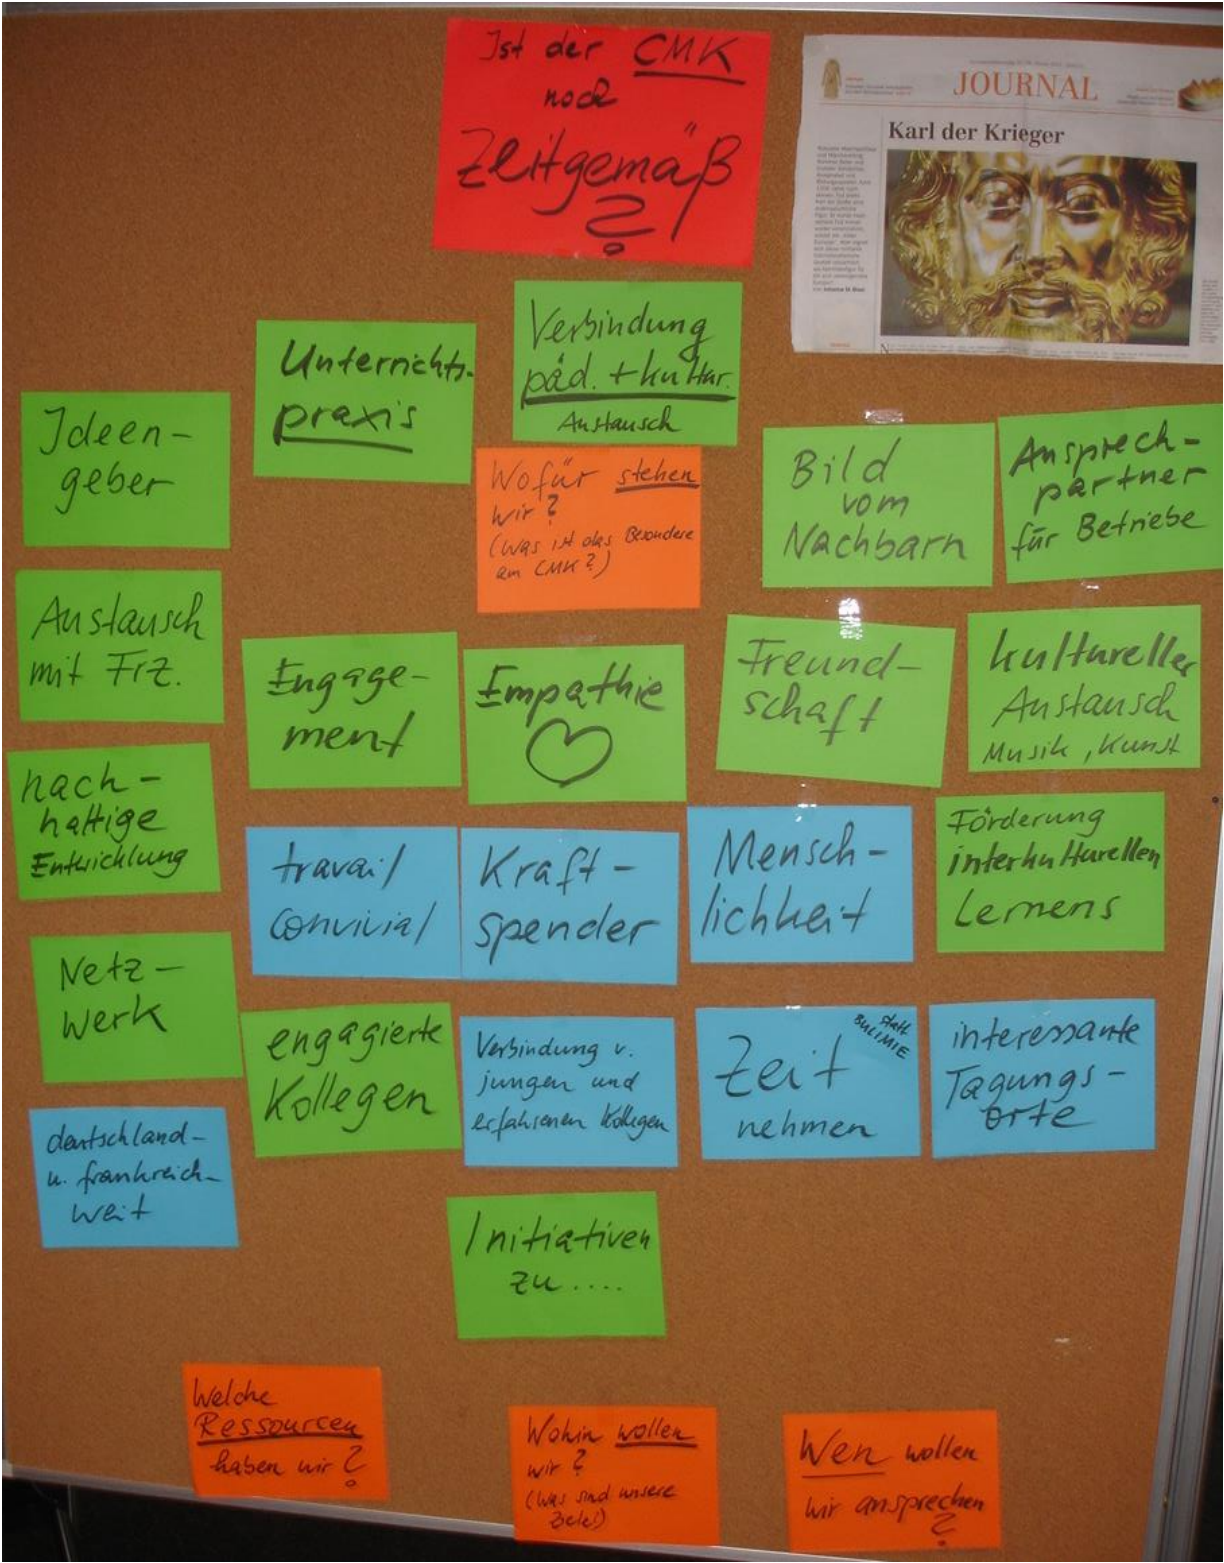 Ist der CMK
noch
Zeitgemäß
?
JOURNAL
Karl der Krieger
Verbindung
päd. + kultur.
Austausch
Unterrichts-
praxis
Ideen-
geber
Wofür stehen
wir?
(Was ist das Besondere
am CMK?)
Bild
vom
Nachbarn
Ansprech-
partner
für Betriebe
Austausch
mit Frz.
Engage-
ment
Empathie
Freund-
schaft
kultureller
Austausch
Musik, Kunst
nach-
haltige
Entwicklung
travail
convivial
Kraft-
spender
Mensch-
lichkeit
Förderung
interkulturellen
Lernens
Netz-
werk
engagierte
Kollegen
Verbindung v.
jungen und
erfahrenen Kollegen
Zeit
nehmen
statt
BULIMIE
interessante
Tagungs-
orte
deutschland-
u. frankreich-
weit
Initiativen
zu ....
Welche
Ressourcen
haben wir?
Wohin wollen
wir?
(Was sind unsere
Ziele?)
Wen wollen
wir ansprechen
?